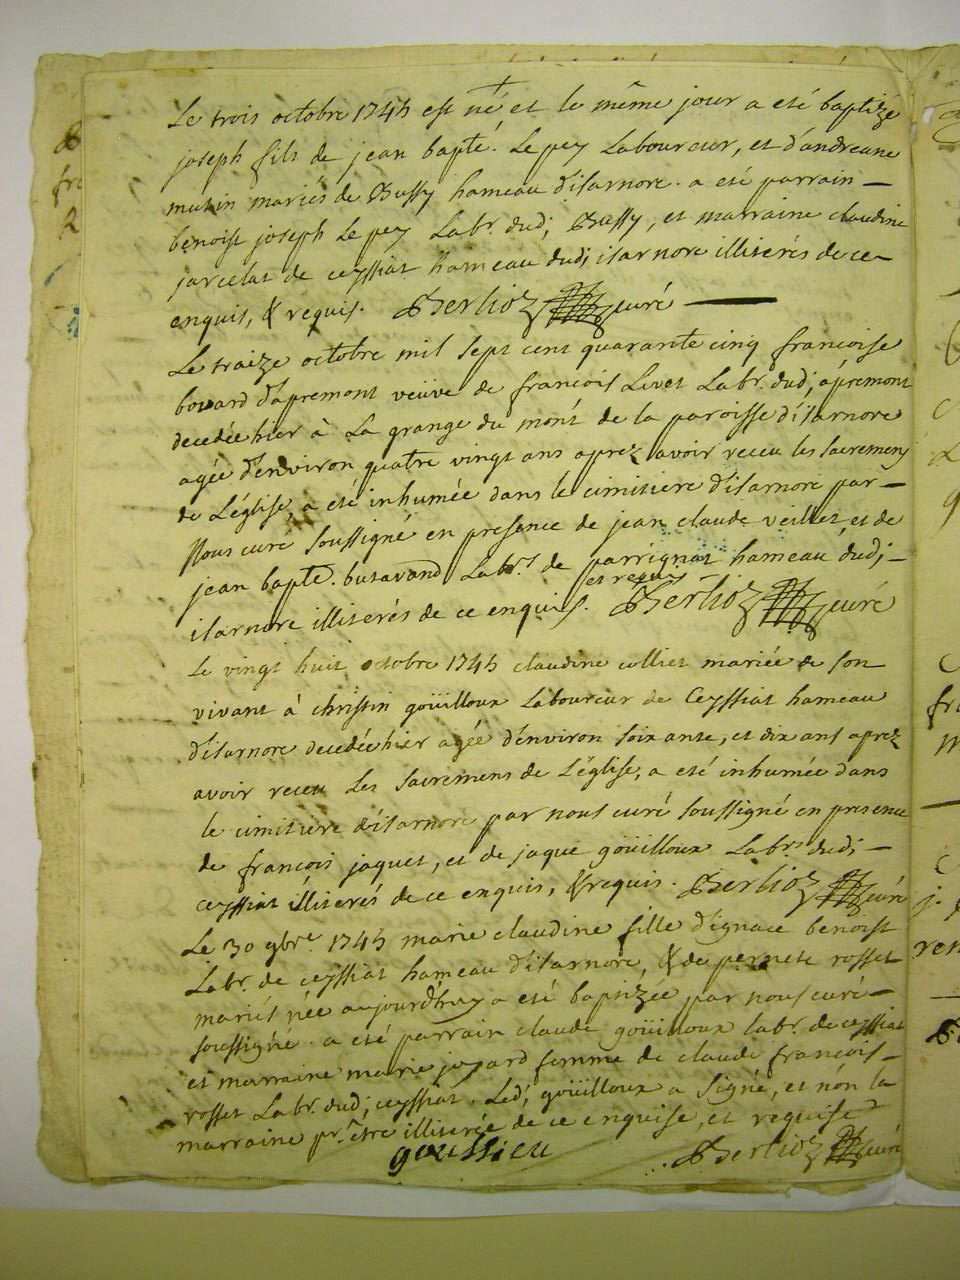 Le trois octobre 1745 est né, et le même jour a eté baptizé
joseph fils de jean bapte. Le pey Laboureur, et d'andreane
mutin mariés de Bussy hameau d'isarnore. a eté parrain —
benoist joseph Le pey Labr. dud; Bussy, et marraine claudine
jarcelat de ceyssiat hameau dud; isarnore illiterés de ce —
enquis, & requis. Berlioz curé —
Le traize octobre mil sept cent quarante cinq francoise
bovard d'apremont veüve de francois Livet Labr. dud; apremont
decedée hier à La grange du mont de la paroisse d'isarnore
agée d'environ quatre vingt ans aprez avoir receu les sacremens
de L'église, a eté inhumée dans le cimitiere d'isarnore par —
Nous curé soussigné en presence de jean claude veillet, et de
jean bapte. butavand Labrs. de parrignat hameau dud; —
et requis
isarnore illiterés de ce enquis. Berlioz curé
Le vingt huit octobre 1745 claudine colliet mariée de son
vivant à christin goüilloux Laboureur de Ceyssiat hameau
d'isarnore decedée hier agée d'environ soixante, et dix ans aprez
avoir receu Les sacremens de L'église, a eté inhumée dans
le cimitiere d'isarnore par nous curé soussigné en presence
de francois jaquet, et de jaque goüilloux Labrs. dud; —
ceyssiat illiterés de ce enquis, & requis. Berlioz curé
Le 30 9bre. 1745 marie claudine fille d'ignace benoist
Labr. de ceyssiat hameau d'isarnore, & de pernete rosset
mariés née aujourd'huy a eté baptizée par nous curé —
soussigné. a eté parrain claude goüilloux labr. de ceyssiat
et marraine marie femme de claude francois —
rosset Labr. dud; ceyssiat. Led; goüilloux a signé, et nón la
marraine pr. être illiterée de ce enquise, et requise
goullieu Berlioz curé